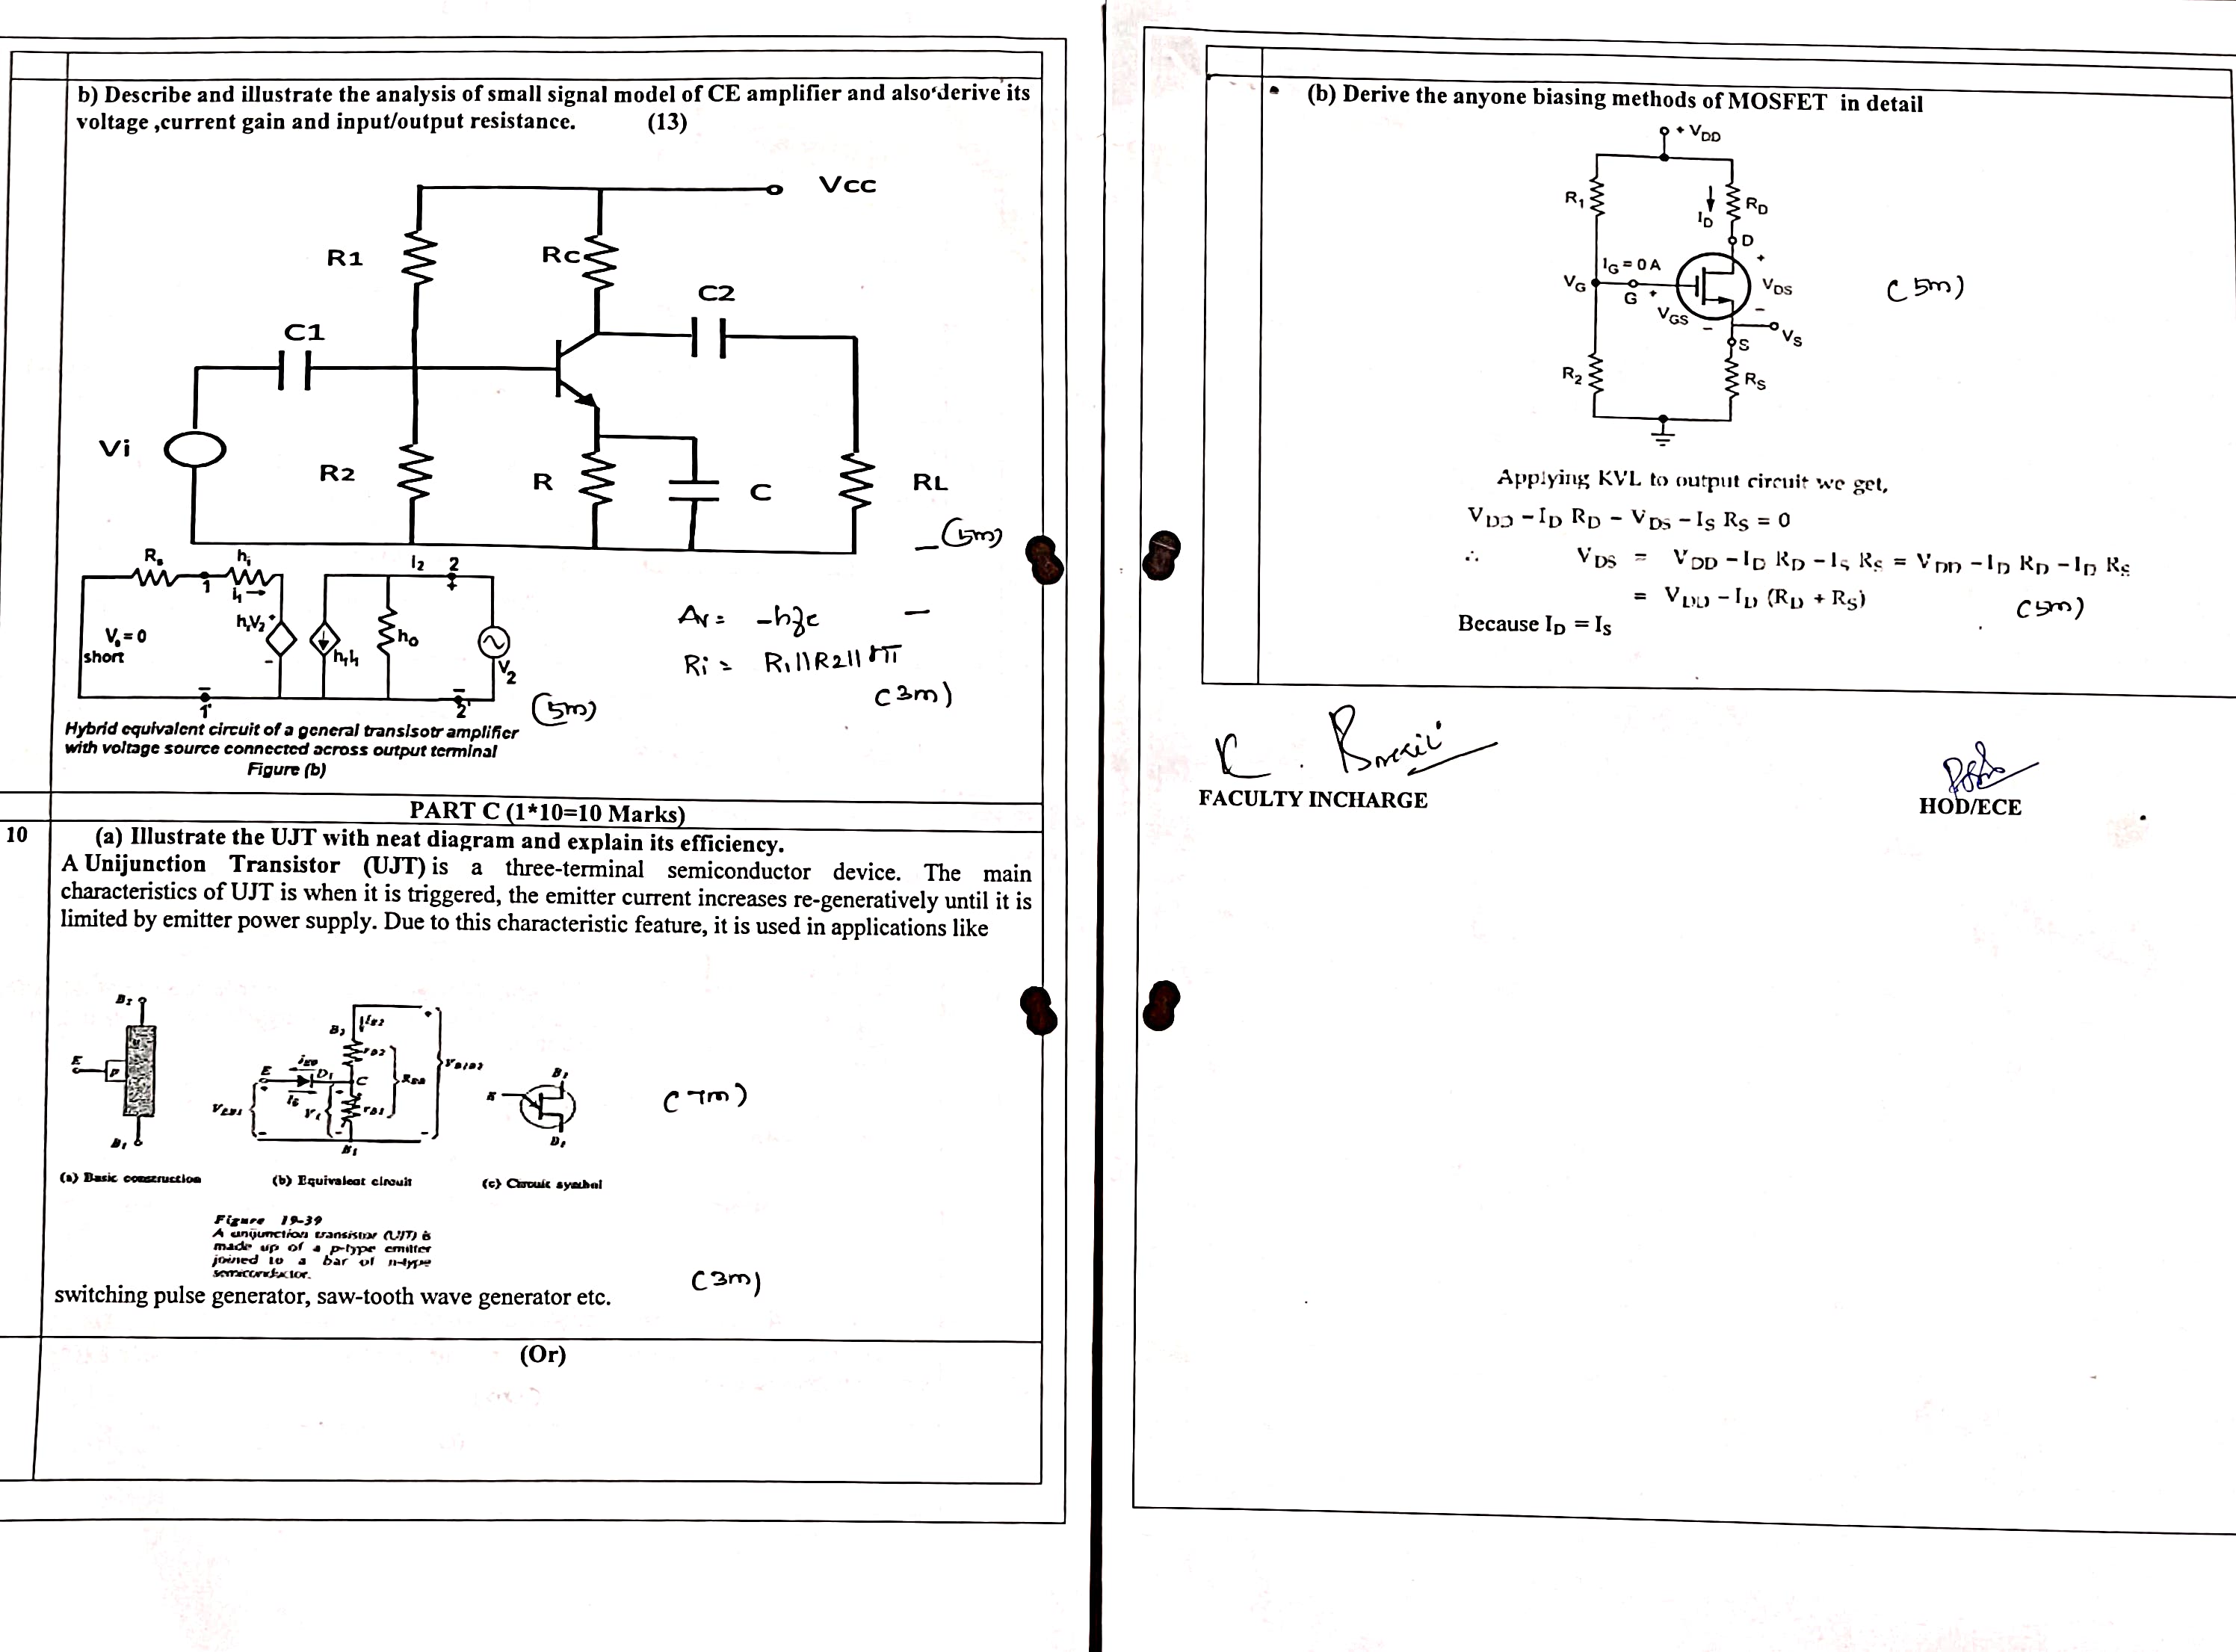 b) Describe and illustrate the analysis of small signal model of CE amplifier and also derive its
voltage ,current gain and input/output resistance. (13)
Vcc
R1
Rc
C2
C1
Vi
R2
R
C
RL
(5m)
Rs
hi
I2 2
1
i1
hrV2
+
-
V = 0
short
ho
V2
1'
2'
(5m)
Av = -hfe
Ri = R1||R2||rπ
(3m)
Hybrid equivalent circuit of a general transisotr amplifier
with voltage source connected across output terminal
Figure (b)
PART C (1*10=10 Marks)
10 (a) Illustrate the UJT with neat diagram and explain its efficiency.
A Unijunction Transistor (UJT) is a three-terminal semiconductor device. The main
characteristics of UJT is when it is triggered, the emitter current increases re-generatively until it is
limited by emitter power supply. Due to this characteristic feature, it is used in applications like
B2
E
P
B1
B2
IB2
rB2
E
D1
C
RBB
VB1B2
IE
V1
rB1
VEB1
B1
E
B2
(7m)
(a) Basic construction (b) Equivalent circuit (c) Circuit symbol
Figure 19-39
A unijunction transistor (UJT) is
made up of a p-type emitter
joined to a bar of n-type
semiconductor.
(3m)
switching pulse generator, saw-tooth wave generator etc.
(Or)
(b) Derive the anyone biasing methods of MOSFET in detail
+ VDD
R1
ID
RD
D
+
IG = 0 A
VG
G
+
VGS
-
VDS
-
VS
S
R2
RS
(5m)
Applying KVL to output circuit we get,
VDD - ID RD - VDS - IS RS = 0
∴ VDS = VDD - ID RD - IS RS = VDD - ID RD - ID RS
= VDD - ID (RD + RS)
(5m)
Because ID = IS
FACULTY INCHARGE
HOD/ECE